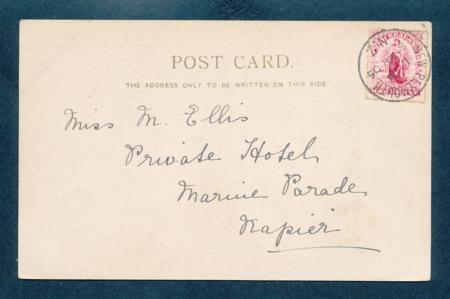 POST CARD.
THE ADDRESS ONLY TO BE WRITTEN ON THIS SIDE.
Miss M. Ellis
Private Hotel
Marine Parade
Napier